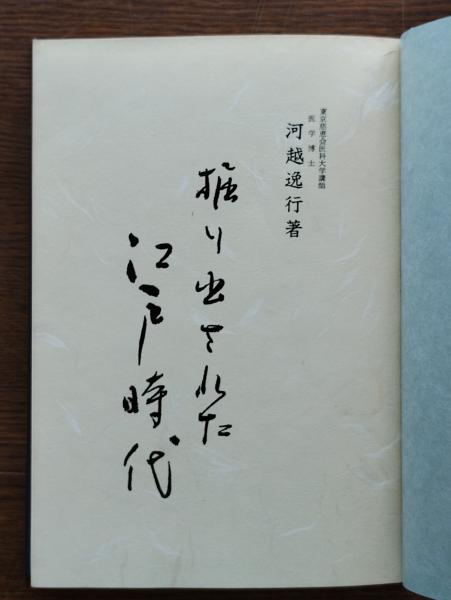 東京慈恵会医科大学講師
医学博士
河越逸行著
掘り出された
江戸時代